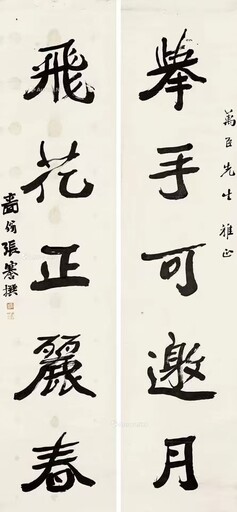 萬臣先生雅正
舉手可邀月
飛花正麗春
嗇翁張謇撰